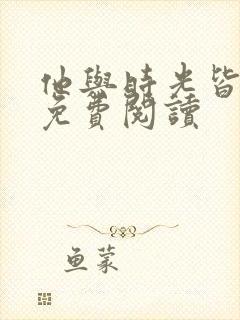 他與時光皆
免費閱讀
魚蒙